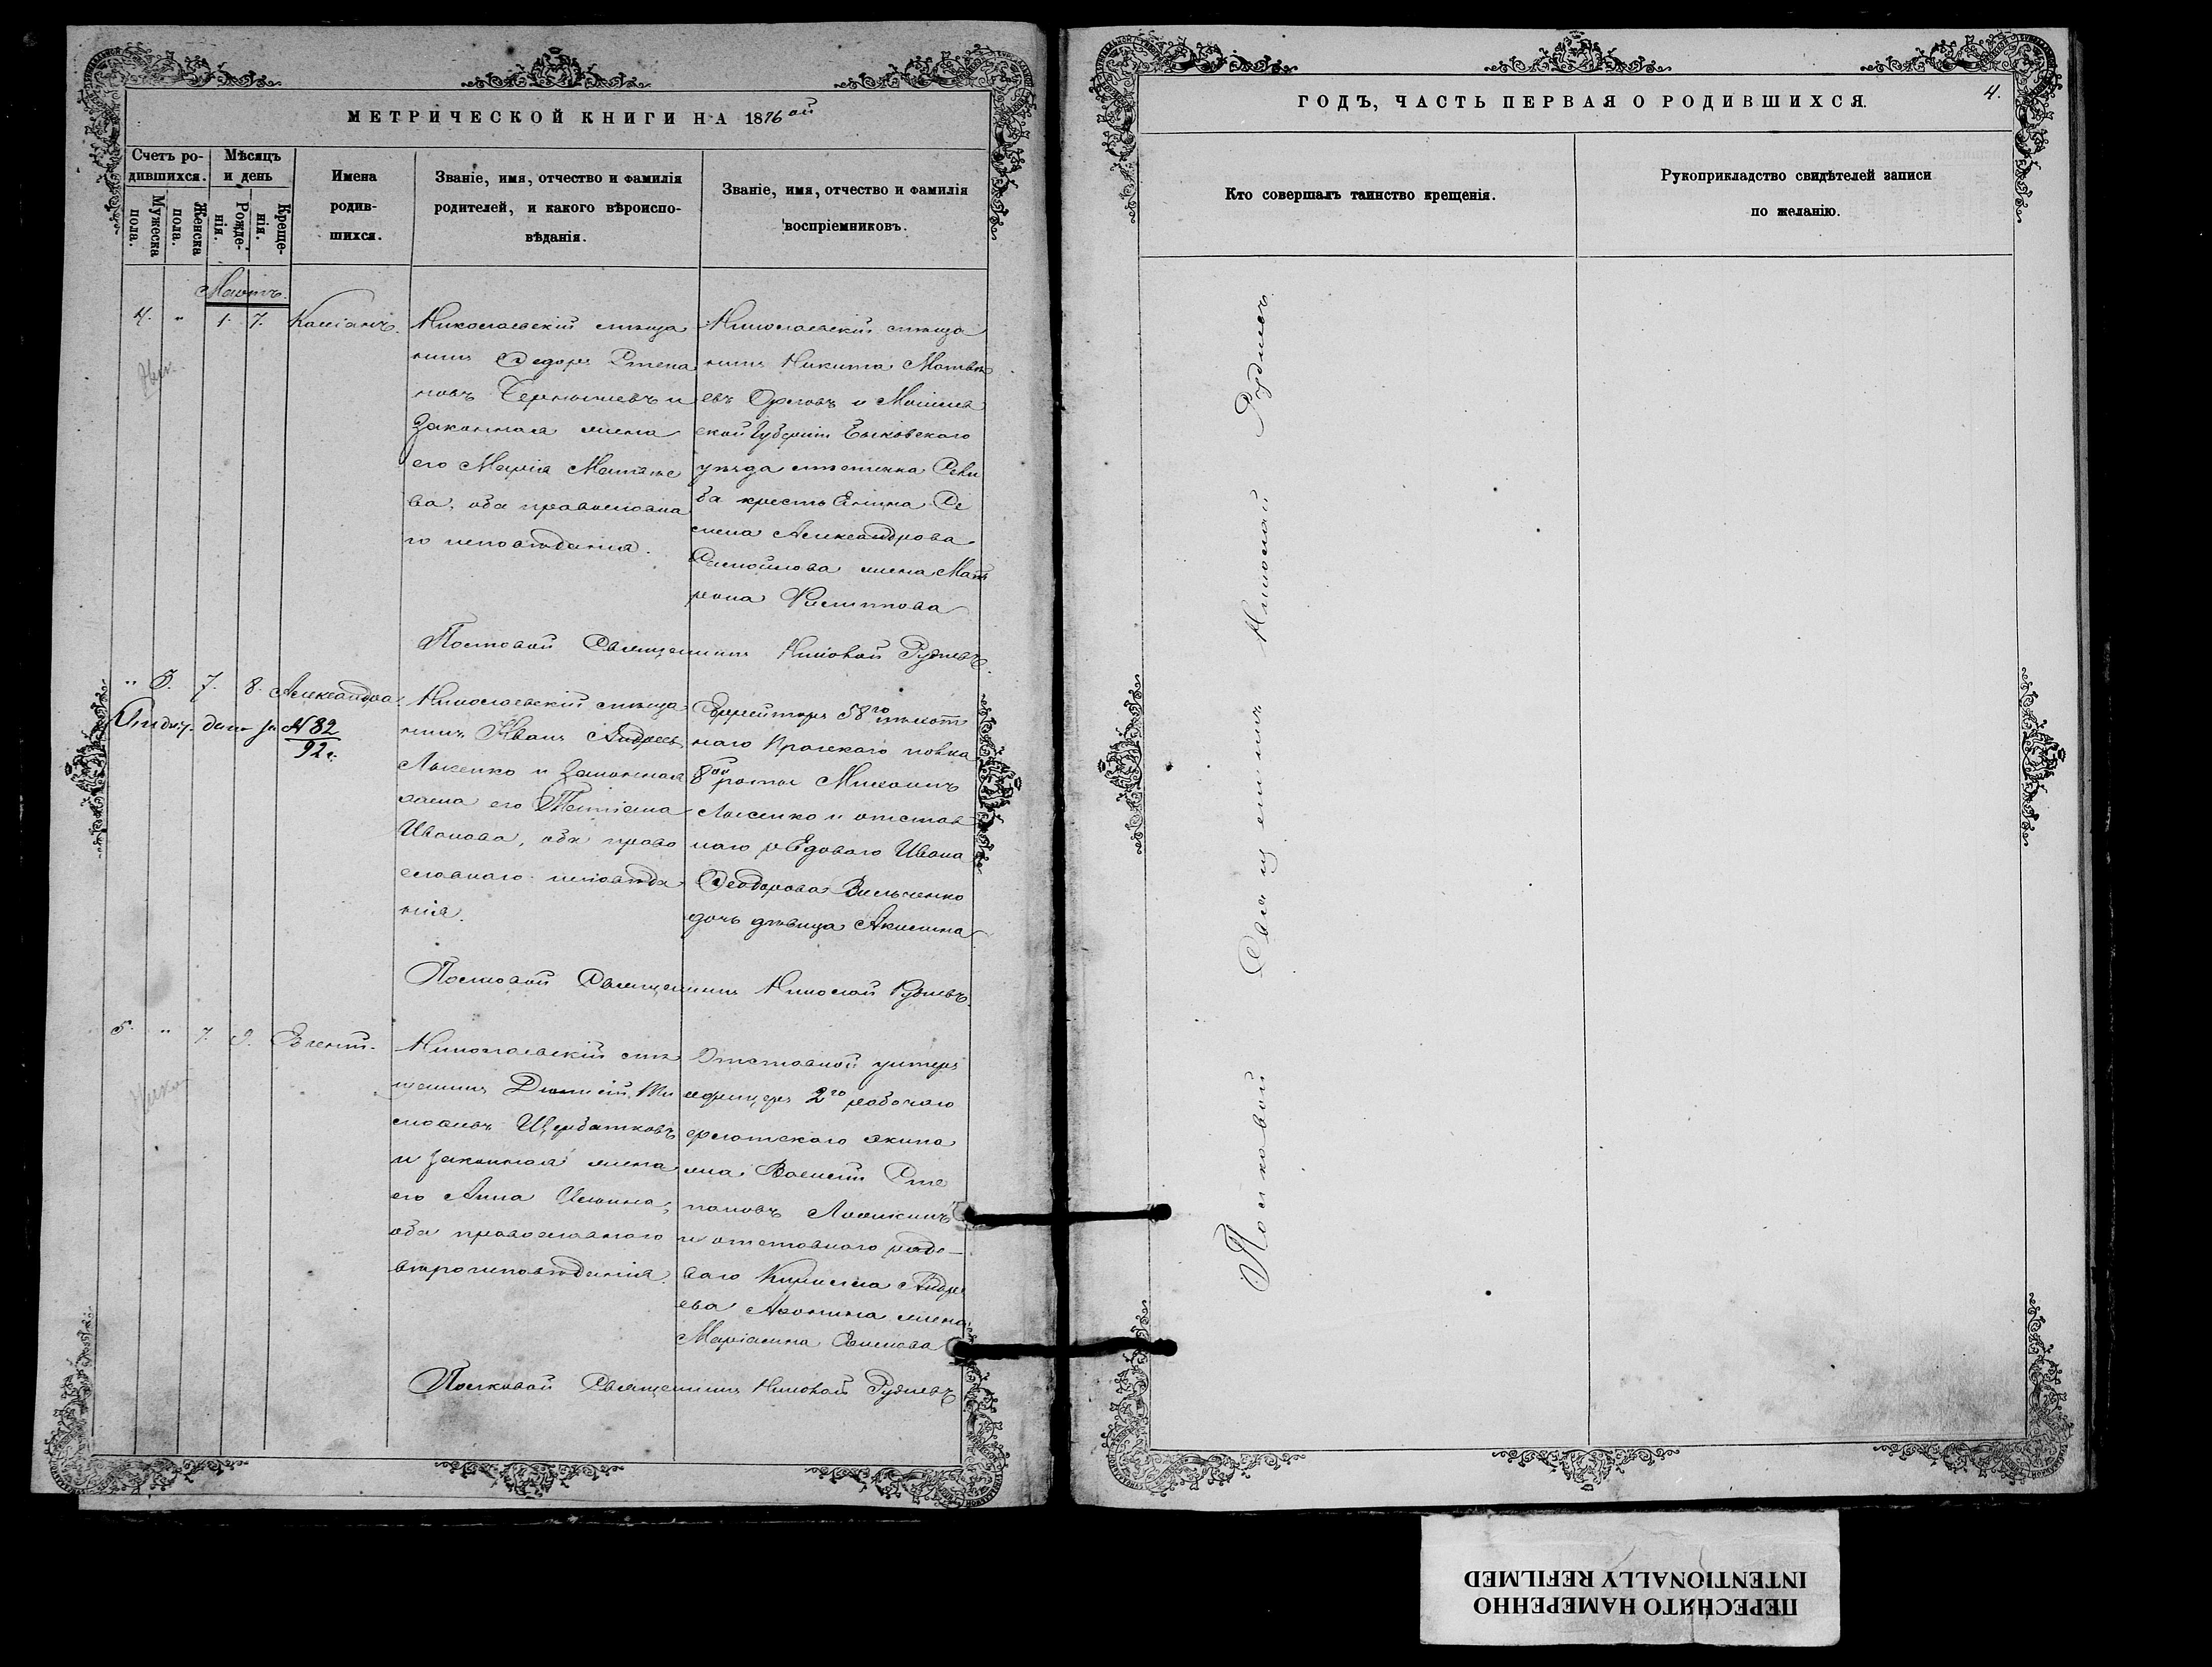 МЕТРИЧЕСКОЙ КНИГИ НА 1876ой
Счетъ ро-
дившихся.
Мѣсяцъ
и день
Мужеска
пола.
Женска
пола.
Рожде-
нія.
Креще-
нія.
Имена
родив-
шихся.
Званіе, имя, отчество и фамилія
родителей, и какого вѣроиспо-
вѣданія.
Званіе, имя, отчество и фамилія
воспріемниковъ.
Мартъ.
4. " 1. 7. Кассіанъ.
Николаевскій мѣща
нинъ Федоръ Степа
новъ Чернышевъ и
законная жена
его Марія Матвѣе
ва, оба православна
го исповѣданія.
Николаевскій мѣща
нинъ Никита Матвѣ
евъ Орловъ и Могилев
ской Губерніи Быховского
уѣзда мѣстечка
крестьянина Се
мена Александрова
Самойлова жена Мат
рона Филиппова
Полковой Священникъ Николай Рудневъ.
" 3. 7. 8. Александра.
дано за №82
92г.
Николаевскій мѣща
нинъ Иванъ Андреевъ
Лысенко и законная
жена его Татіана
Иванова, оба право
славнаго исповѣда
нія.
Ефрейторъ 58го пѣхот
наго Прагскаго полка
8ой роты Михаилъ
Лысенко и отстав
наго рядоваго Ивана
Феодорова Вильченко
дочь дѣвица Акилина
Полковой Священникъ Николай Рудневъ.
5. " 7. 9. Евгеній.
Николаевскій мѣ
щанинъ Діонисій Ти
мофеевъ Щербатковъ
и законная жена
его Анна Ильина,
оба православнаго
вѣроисповѣданія.
Отставной унтеръ
офицеръ 2го рабочаго
флотскаго экипа
жа Василій Сте
пановъ Лошкинъ
и отставнаго рядо-
ваго Кирилла Андре
ева Афонина жена
Маріанна Семенова
Полковой Священникъ Николай Рудневъ
ГОДЪ, ЧАСТЬ ПЕРВАЯ О РОДИВШИХСЯ.
4.
Кто совершалъ таинство крещенія.
Рукоприкладство свидѣтелей записи
по желанію.
Полковой Священникъ Николай Рудневъ
ПЕРЕСНЯТО НАМЕРЕННО
INTENTIONALLY REFILMED